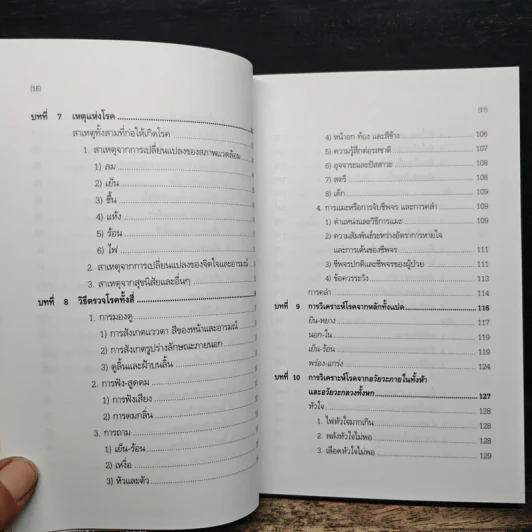 (16)
บทที่ 7 เหตุแห่งโรค
สาเหตุทั้งสามที่ก่อให้เกิดโรค
1. สาเหตุจากการเปลี่ยนแปลงของสภาพแวดล้อม
1) ลม
2) เย็น
3) ชื้น
4) แห้ง
5) ร้อน
6) ไฟ
2. สาเหตุจากการเปลี่ยนแปลงของจิตใจและอารมณ์
3. สาเหตุจากสุขนิสัยและอื่นๆ
บทที่ 8 วิธีตรวจโรคทั้งสี่
1. การมองดู
1) การสังเกตแววตา สีของหน้าและอารมณ์
2) การสังเกตรูปร่างลักษณะภายนอก
3) ดูลิ้นและฝ้าบนลิ้น
2. การฟัง-สูดดม
1) การฟังเสียง
2) การดมกลิ่น
3. การถาม
1) เย็น-ร้อน
2) เหงื่อ
3) หัวและตัว
(17)
4) หน้าอก ท้อง และสีข้าง 106
5) ความรู้สึกต่อรสชาติ 107
6) อุจจาระและปัสสาวะ 108
7) สตรี 108
8) เด็ก 109
4. การแมะหรือการจับชีพจร และการคลำ 109
1) ตำแหน่งและวิธีการแมะ 109
2) ความสัมพันธ์ระหว่างอัตราการหายใจ
และการเต้นของชีพจร 111
3) ชีพจรปกติและชีพจรของผู้ป่วย 111
4) ข้อควรระวัง 113
การคลำ 114
บทที่ 9 การวิเคราะห์โรคจากหลักทั้งแปด 116
ยิน-หยาง 117
นอก-ใน 119
เย็น-ร้อน 119
พร่อง-แกร่ง 124
บทที่ 10 การวิเคราะห์โรคจากอวัยวะภายในทั้งห้า
และอวัยวะกลวงทั้งหก 127
หัวใจ 128
1. ไฟหัวใจมากเกิน 128
2. พลังหัวใจไม่พอ 128
3. เลือดหัวใจไม่พอ 129